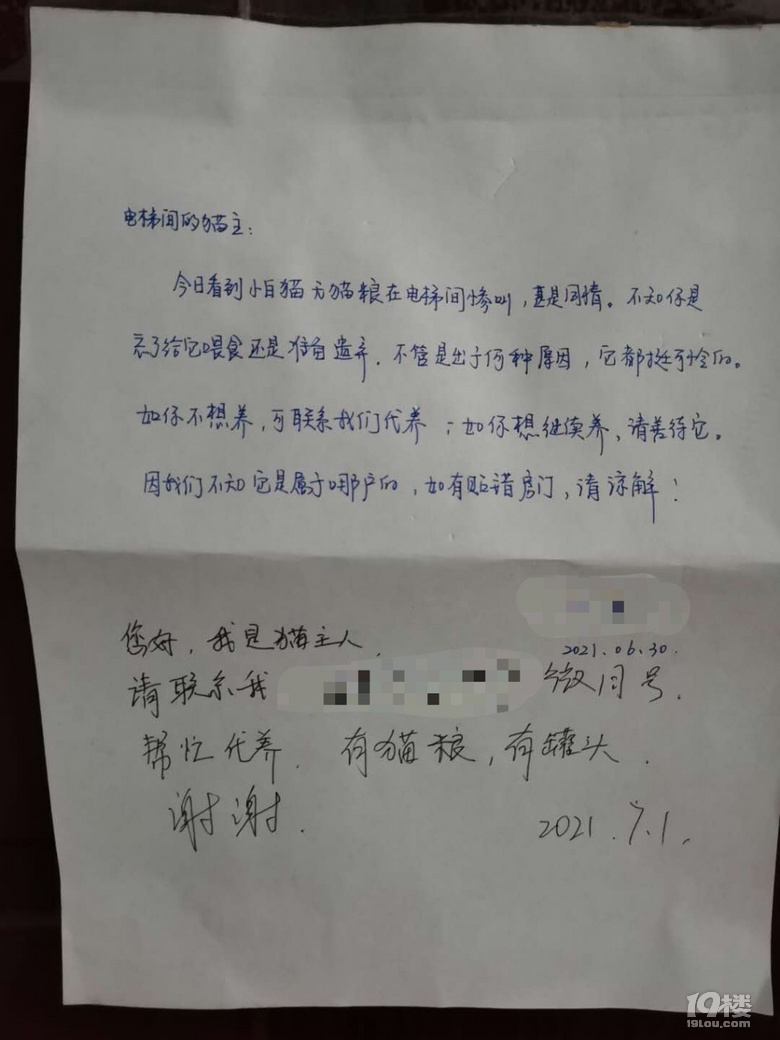 电梯间的猫主：
今日看到小白猫无猫粮在电梯间惨叫，真是同情。不知你是
忘了给它喂食还是独自遗弃．不管是出于何种原因，它都挺可怜的。
如你不想养，可联系我们代养；如你想继续养，请善待它。
因我们不知它是属于哪户的，如有贴错房门，请谅解！
2021.06.30.
您好，我是猫主人．
请联系我 微同号．
帮忙代养．有猫粮，有罐头．
谢谢．
2021.7.1.
19楼
19lou.com